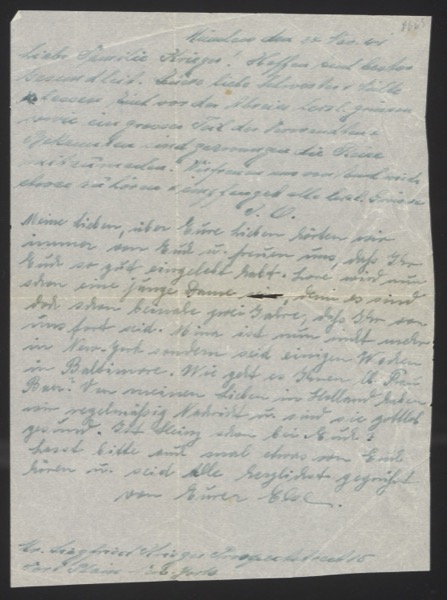 München den 24 Nov. 41
Liebe Familie Krieger! Hoffen Euch besten
Gesundheit. Eure liebe Schwester
lassen Euch von der herzl. grüssen
sowie ein grosser Teil der Verwandten
Bekannten und gezwungen die Reise
mitzumachen. Wir freuen uns von Euch
etwas zu hören u. empfanget alle herzl. Grüsse
Meine Lieben, über Eure Lieben hörten wir
immer von Euch u. freuen uns, daß Ihr
Euch so gut eingelebt habt. Lore wird nun
schon eine junge Dame sein, denn es sind
doch schon beinahe zwei Jahre, daß Ihr von
uns fort seid. Mina ist nun nicht mehr
in New-York sondern seit einigen Wochen
in Baltimore. Wie geht es Ihnen lb. Frau
Baer? Von meinen Lieben in Holland haben
wir regelmäßig Nachricht u. sind sie gottlob
gesund. Ist Heinz schon bei Euch?
Lasst bitte auch mal etwas von Euch
hören u. seid Alle herzlichst gegrüßt
von Eurer Else.
Mr. Siegfried Krieger Prospectstreet 15
Port Plain N. York